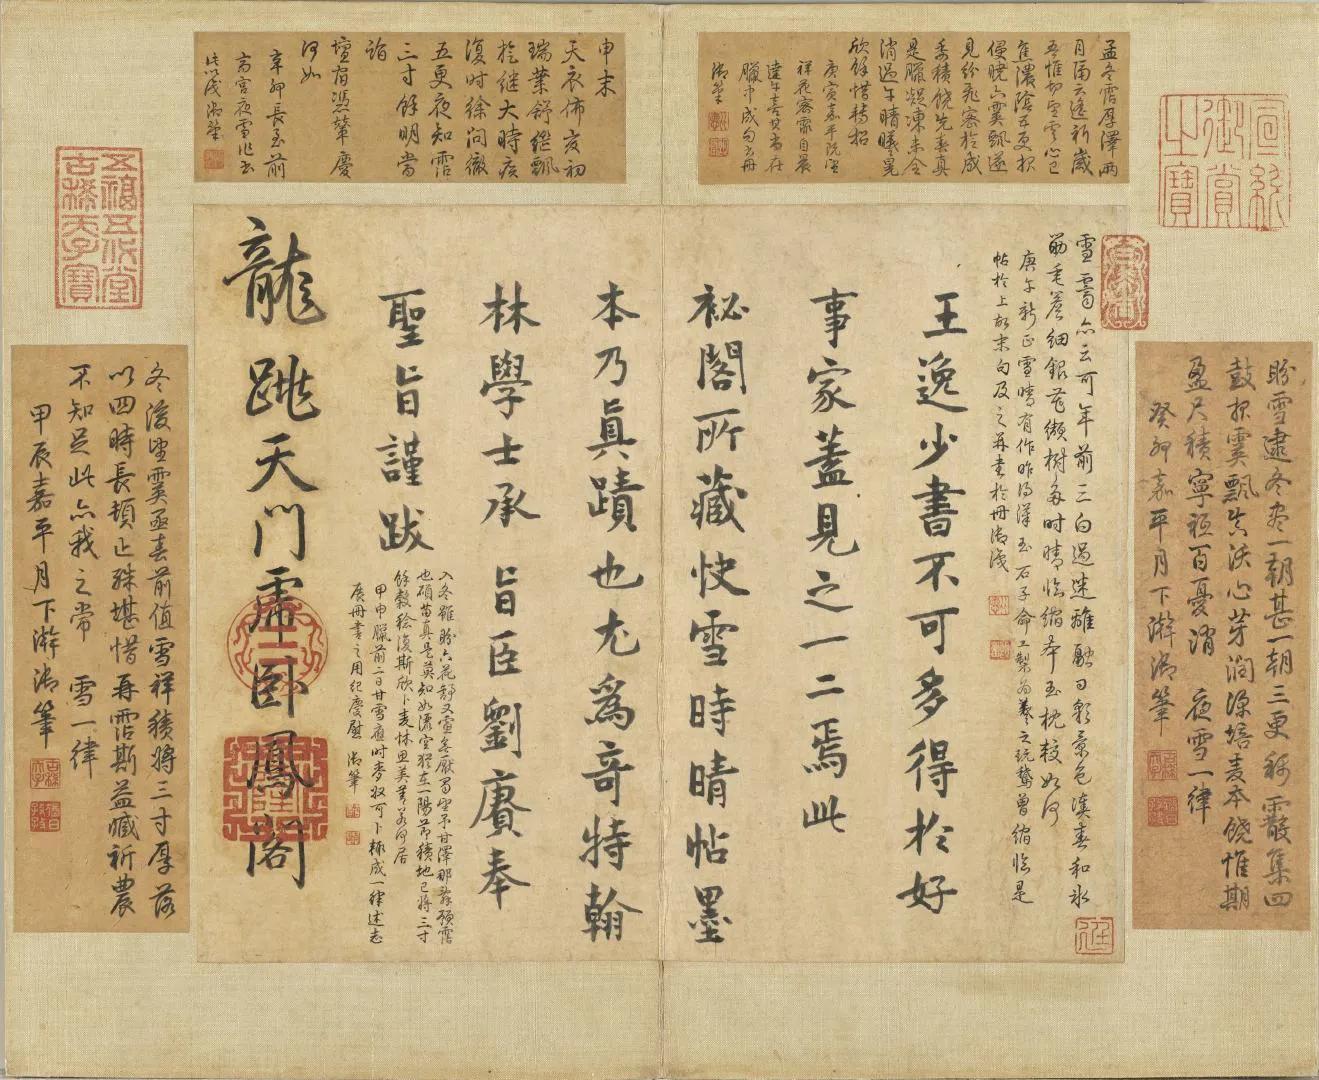 宣統
御賞
之寶
盼雪逮冬盡一朝甚一朝三更稀霰集四
鼓報霙飄真沃心芽潤深培麦本饒惟期
盈尺積寧祗百憂消　夜雪一律
癸卯嘉平月下澣御筆
孟冬霑厚澤兩
月隔云遙祈歲
吾惟切望雲心已
焦濃陰五更報
侵曉六霙飄遂
見紛飛密於成
委積饒先春真
是臘凝凍未令
消過午晴曦晃
欣餘惜轉招
庚寅嘉平既望
祥花密霰自晨
達午喜其尚在
臘中成句書冊
御筆
雪霽亦云可年前三白過迷離融日彩景色凝春和冰
筯毛簷細銀花綴樹多時晴臨縮本玉枕較如何
庚午新正雪晴有作昨得漢玉石子命工製為羲之玩鵝曾縮臨是
帖於上故末句及之并書於冊御識
王逸少書不可多得於好
事家蓋見之一二焉此
祕閣所藏快雪時晴帖墨
本乃眞蹟也尤爲奇特翰
林學士承旨臣劉賡奉
聖旨謹跋
入冬雖盼六花舒又望予甘澤那辭頻霑
也碩苗真是莫知如空猶在一陽節積地已將三寸
餘穀稔復斯欣卜麦休思美若何居
甲申臘前二日甘雪應時麥收可卜成一律述志
展冊書之用紀慶慰 御筆
龍跳天門虎臥鳳閣
申末
天衣佈亥初
瑞葉舒纔飄
於繼大時疾
復時徐問徹
五更夜知霑
三寸餘明當
詣
壇宿憑輦慶
何如
辛卯長至前
齋宮夜雪作書
御筆
五福五代堂
古稀天子寶
冬後望霙亟春前值雪祥積將三寸厚落
以四時長頓止殊堪惜再霑斯益臧祈農
不知足此亦我之常　雪一律
甲辰嘉平月下澣御筆